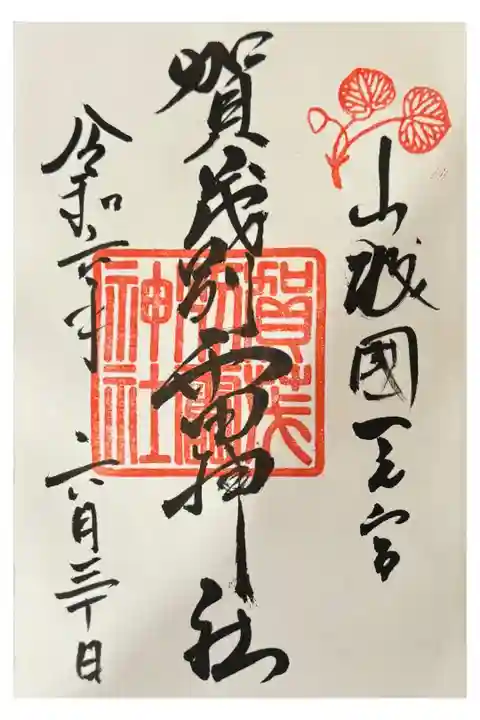 山城國一之宮
賀茂別雷神社
賀茂別雷神社
令和六年 六月三十日